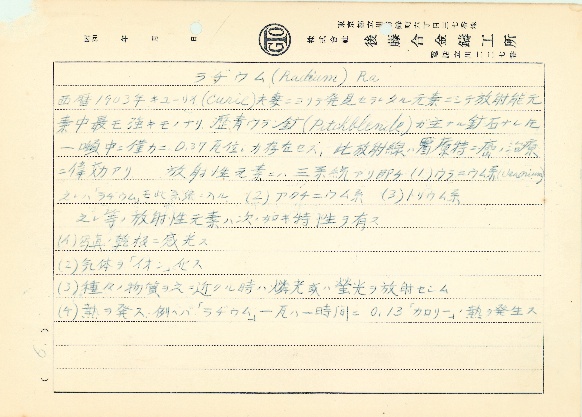 昭和 年 月 日
株式会社 後藤合金鋳工所
ラヂウム (Radium) Ra
西暦1903年キューリイ(Curie)夫妻ニヨリ発見セラレタル元素ニシテ放射能元
素中最モ強キモノナリ、瀝青ウラン鉱(Pitchblende)ガ主ナル鉱石ナレ圧
一噸中ニ僅カニ0.37瓦位シカ存在セズ、此放射線ハ癌ノ治療
ニ偉効アリ 放射性元素ニハ三系統アリ即チ(1)ウラニウム系(Uranium)
ラヂウムモ此系統ニ入ル (2)アクチニウム系 (3)トリウム系
之レ等ノ放射性元素ハ次ノ如キ特性ヲ有ス
(1)写真乾板ニ感光ス
(2)気体ヲ「イオン」化ス
(3)種々ノ物質ヲ之ニ近ヅクル時ハ燐光或ハ螢光ヲ放射セシム
(4)熱ヲ発ス 例ヘバ「ラヂウム」一瓦ハ一時間ニ 0.13「カロリー」ノ熱ヲ発生ス